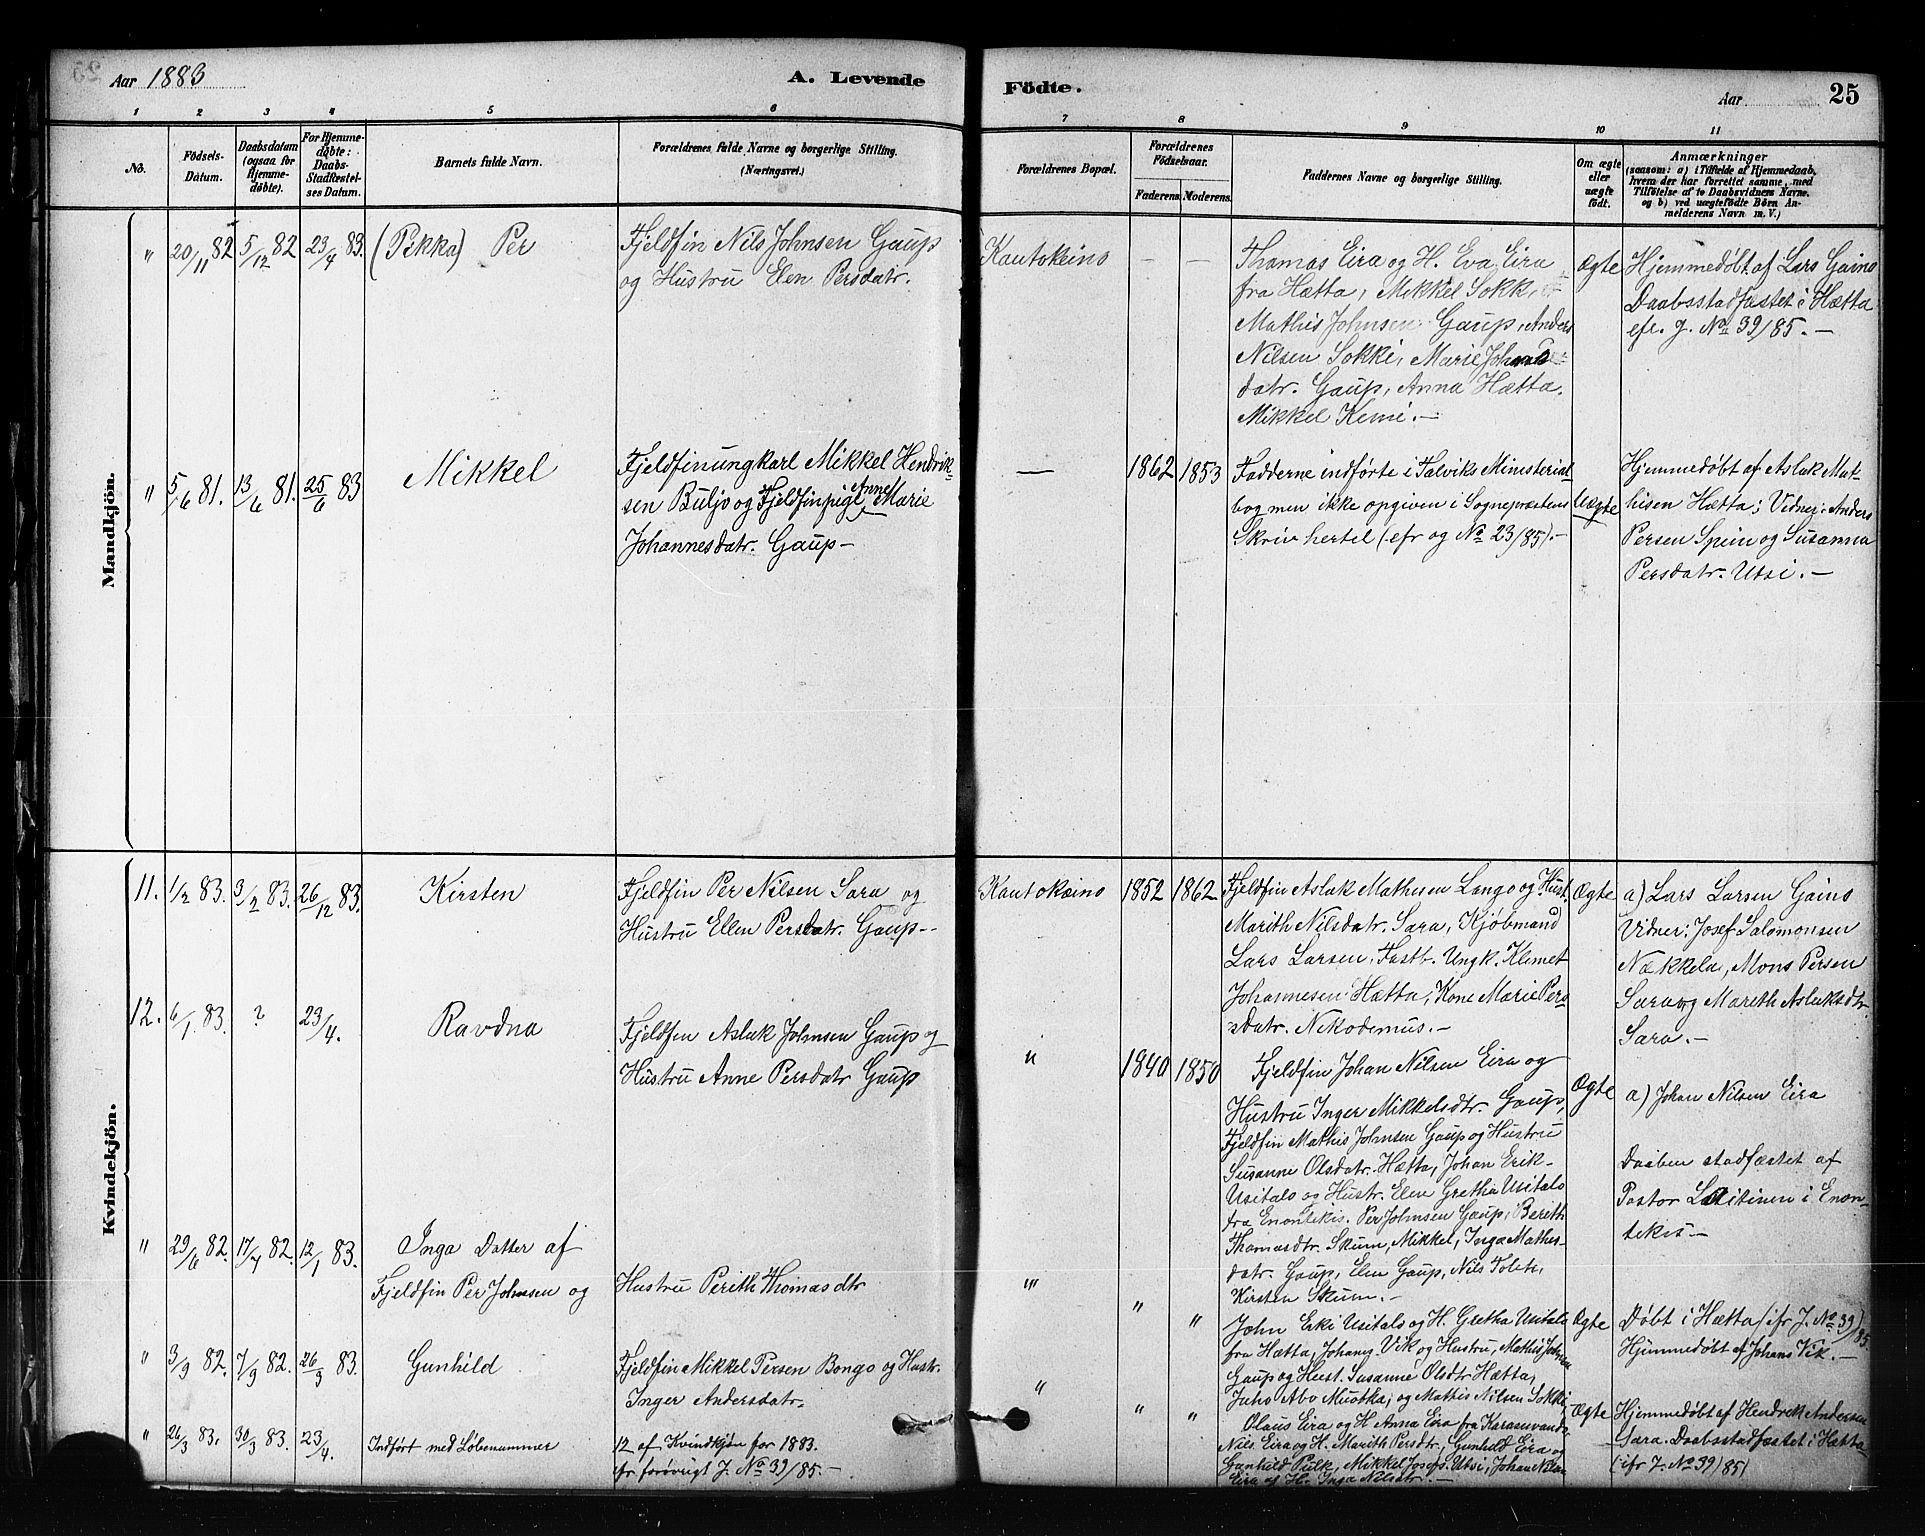 Aar 1883
A. Levende
Födte.
Aar
25
1 2 3 4 5 6 7 8 9 10 11
No.
Födsels-
Datum.
Daabsdatum
(ogsaa for
Hjemme-
døbte).
For Hjemme-
døbte:
Daabs-
Stadfæstel-
ses Datum.
Barnets fulde Navn.
Forældrenes fulde Navne og borgerlige Stilling.
(Næringsvei.)
Forældrenes Bopæl.
Forældrenes
Födselsaar.
Faderens. Moderens.
Faddernes Navne og borgerlige Stilling.
Om ægte
eller
uægte
födt.
Anmærkninger
(saasom: a) i Tilfælde af Hjemmedaab,
hvem der har forrettet samme, med
Tilföielse af to Daabsvidners Navne.
og b) ved uægtefödte Börn An-
melderens Navn m. V.)
Mandkjön.
" 20/11 82 5/12 82 23/4 83. (Pekka) Per
Fjeldfin Nils Johnsen Gaup
og Hustru Elen Persdatr.
Kautokeino
— —
Thomas Eira og H. Eva Eira
fra Hætta, Mikkel Sokki,
Mathis Johnsen Gaup, Anders
Nilsen Sokki, Marie Johans
datr. Gaup, Anna Hætta.
Mikkel Kemi.—
Ægte
Hjemmedøbt af Lars Gaino
Daabsstadfæstet i Hætta
cfr. J. No 39/85.—
" 5/6 81. 13/6 81. 25/6 83 Mikkel
Fjeldfinungkarl Mikkel Hendrik-
sen Buljo og Fjeldfinpige Anne Marie
Johannesdatr. Gaup—
— 1862 1853
Fadderne indførte i Talviks Ministerial
bog men ikke opgiven i Sogneprestens
Skriv hertel (cfr og No 23/85).—
Uægte
Hjemmedøbt af Aslak Mat-
hisen Hætta; Vidner: Anders
Persen Spein og Susanna
Persdatr. Utsi.—
Kvindekjön.
11. 1/2 83. 3/2 83. 26/12 83. Kirsten
Fjeldfin Per Nilsen Sara og
Hustru Ellen Persdatr. Gaup--
Kautokeino 1852 1862
Fjeldfin Aslak Mathisen Lango og Hust.
Marith Nilsdatr. Sara, Kjöbmand
Lars Larsen, Fastb. Ungk. Klemet
Johannesen Hætta, Kone Marie Pers
datr. Nikodemus.—
Ægte
a) Lars Larsen Gaino
Vidner: Josef Salomonsen
Nækkela, Mons Persen
Sara og Mareth Aslaksdtr.
Sara.—
12. 6/1 83. ? 23/4. Ravdna
Fjeldfin Aslak Johnsen Gaup og
Hustru Anne Persdatr Gaup
" 1840 1850
Fjeldfin Johan Nilsen Eira og
Hustru Inger Mikkelsdtr. Gaup,
Fjeldfin Mathis Johnsen Gaup og Hustru
Susanne Olsdatr. Hætta, Johan Erik-
Usitalo og Hustr. Elen Gretha Usitalo
fra Enontekis. Per Johnsen Gaup, Bereth
Thomasdtr. Skum, Mikkel, Inga Mathis-
datr. Gaup, Elen Gaup, Nils
Kirsten Skum.—
Ægte
a) Johan Nilsen Eira
Daaben stadfæstet af
Pastor Laitinen i Enon-
tekis—
" 29/6 82. 17/7 82. 12/1 83. Inga Datter af
Fjeldfin Per Johnsen og
Hustru Perith Thomasdtr
" " "
John Erki Usitalo og H. Gretha Usitalo
fra Hætta, Johans Vik og Hustru, Mathis Johnsen
Gaup og Hust. Susanne Olsdtr Hætta,
Juho Abo Muotka, og Mathis Nilsen Sokki
Ægte
Døbt i Hætta (cfr J. No 39/85
Hjemmedøbt af Johans Vik.—
" 3/9 82. 7/9 82. 26/3 83. Gunhild
Fjeldfin Mikkel Persen Bongo og Hustr.
Inger Andersdatr.
" " "
Olaus Eira og H Anna Eira fra Karasuvando,
Nils Eira og H. Marith Persdtr, Gunhild Eira og
Gunhild Pulk, Mikkel Josefs. Utsi, Johan Nilsen
Eira og H. Inga Nilsdtr.—
Ægte
Hjemmedøbt af Hendrik Andersen
Sara. Daabsstadfæstet i Hætta
(cfr J. No 39/85)
" 26/3 83. 30/3 83. 23/4. Indført med Löbenummer
12 af Kvindkjön for 1883.
cfr forøvrigt J. No 39/85.—